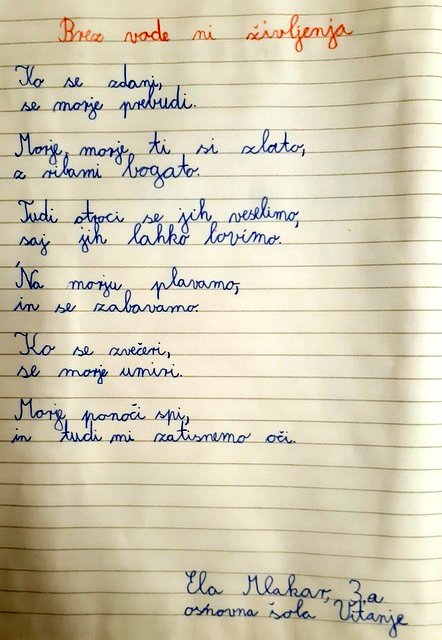 Brez vode ni življenja
Ko se zdani,
se morje prebudi.
Morje, morje, ti si zlato,
z ribami bogato.
Tudi otroci se jih veselimo,
saj jih lahko lovimo.
Na morju plavamo,
in se zabavamo.
Ko se zvečeri,
se morje umiri.
Morje ponoči spi,
in tudi mi zatisnemo oči.
Ela Mlakar, 3.a
osnovna šola Vitanje